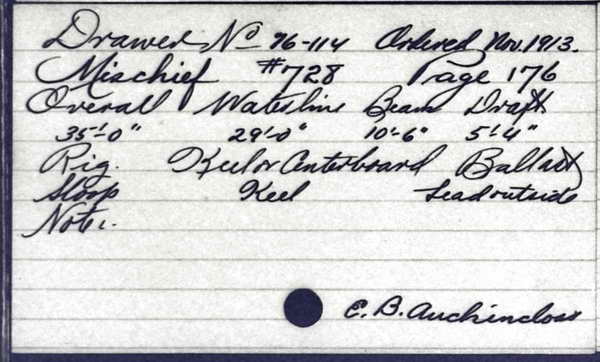 Drawer No 76-114 Ordered Nov. 1913.
Mischief #728 Page 176
Overall Waterline Beam Draft
35'-0" 29'-0" 10'-6" 5'-4"
Rig. Keel or Centerboard Ballast
Sloop Keel Lead outside
Note:.
E. B. Auchincloss